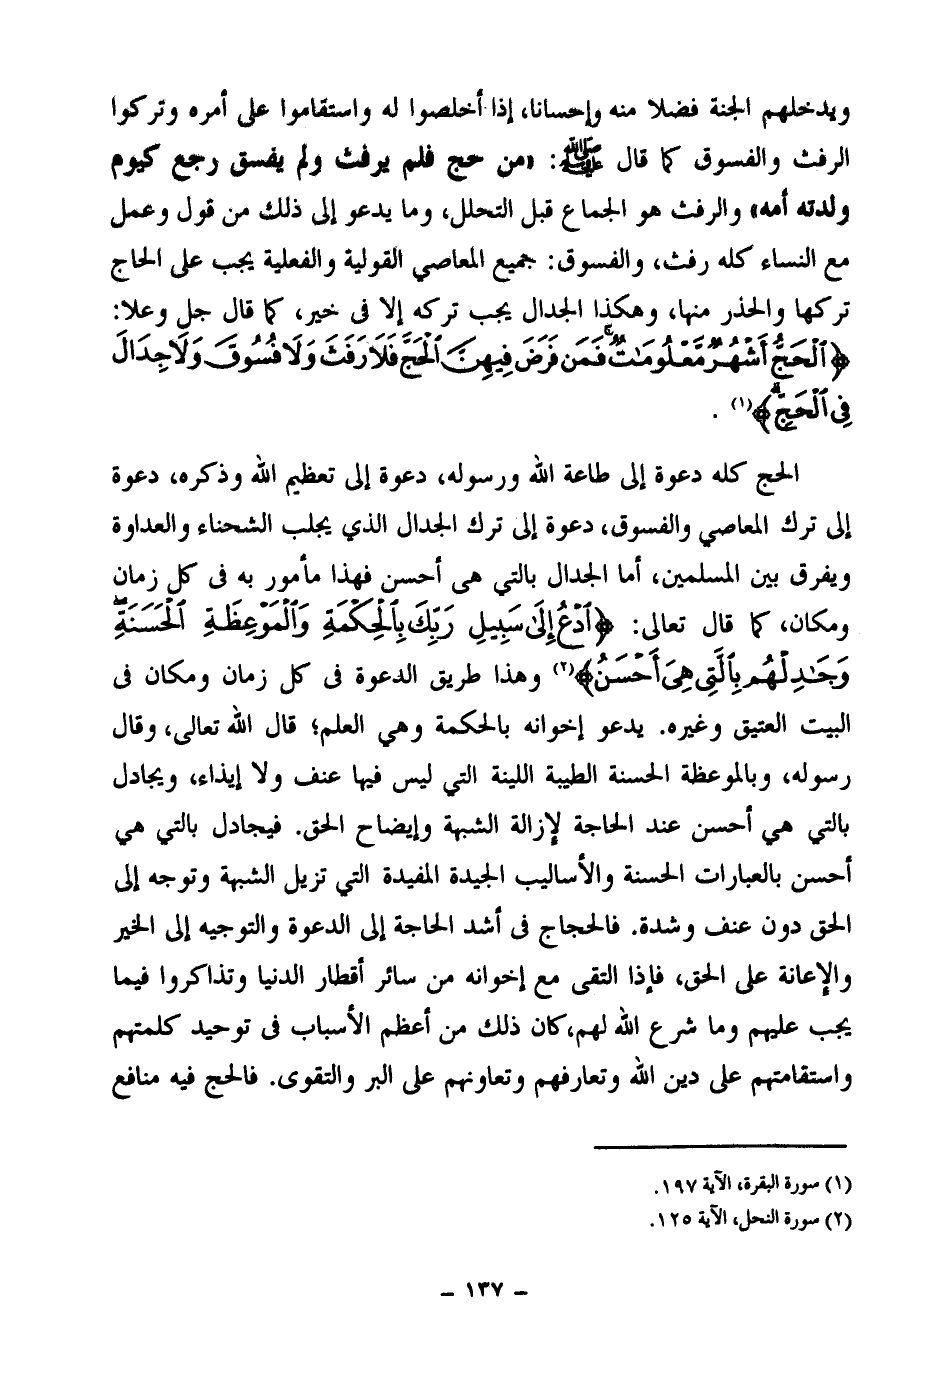 ويدخلهم الجنة فضلا منه وإحسانا، إذا أخلصوا له واستقاموا على أمره وتركوا
الرفث والفسوق كما قال ﷺ: «من حج فلم يرفث ولم يفسق رجع كيوم
ولدته أمه» والرفث هو الجماع قبل التحلل، وما يدعو إلى ذلك من قول وعمل
مع النساء كله رفث، والفسوق: جميع المعاصي القولية والفعلية يجب على الحاج
تركها والحذر منها، وهكذا الجدال يجب تركه إلا فى خير، كما قال جل وعلا:
﴿ٱلْحَجُّ أَشْهُرٌ مَّعْلُومَٰتٌ ۚ فَمَن فَرَضَ فِيهِنَّ ٱلْحَجَّ فَلَا رَفَثَ وَلَا فُسُوقَ وَلَا جِدَالَ
فِى ٱلْحَجِّ ۗ﴾(١) .
الحج كله دعوة إلى طاعة الله ورسوله، دعوة إلى تعظيم الله وذكره، دعوة
إلى ترك المعاصي والفسوق، دعوة إلى ترك الجدال الذي يجلب الشحناء والعداوة
ويفرق بين المسلمين، أما الجدال بالتي هى أحسن فهذا مأمور به فى كل زمان
ومكان، كما قال تعالى: ﴿ٱدْعُ إِلَىٰ سَبِيلِ رَبِّكَ بِٱلْحِكْمَةِ وَٱلْمَوْعِظَةِ ٱلْحَسَنَةِ ۖ
وَجَٰدِلْهُم بِٱلَّتِى هِىَ أَحْسَنُ﴾(٢) وهذا طريق الدعوة فى كل زمان ومكان فى
البيت العتيق وغيره. يدعو إخوانه بالحكمة وهي العلم؛ قال الله تعالى، وقال
رسوله، وبالموعظة الحسنة الطيبة اللينة التي ليس فيها عنف ولا إيذاء، ويجادل
بالتي هي أحسن عند الحاجة لإزالة الشبهة وإيضاح الحق. فيجادل بالتي هي
أحسن بالعبارات الحسنة والأساليب الجيدة المفيدة التي تزيل الشبهة وتوجه إلى
الحق دون عنف وشدة. فالحجاج فى أشد الحاجة إلى الدعوة والتوجيه إلى الخير
والإعانة على الحق، فإذا التقى مع إخوانه من سائر أقطار الدنيا وتذاكروا فيما
يجب عليهم وما شرع الله لهم،كان ذلك من أعظم الأسباب فى توحيد كلمتهم
واستقامتهم على دين الله وتعارفهم وتعاونهم على البر والتقوى. فالحج فيه منافع
(١) سورة البقرة، الآية ١٩٧.
(٢) سورة النحل، الآية ١٢٥.
- ١٣٧ -